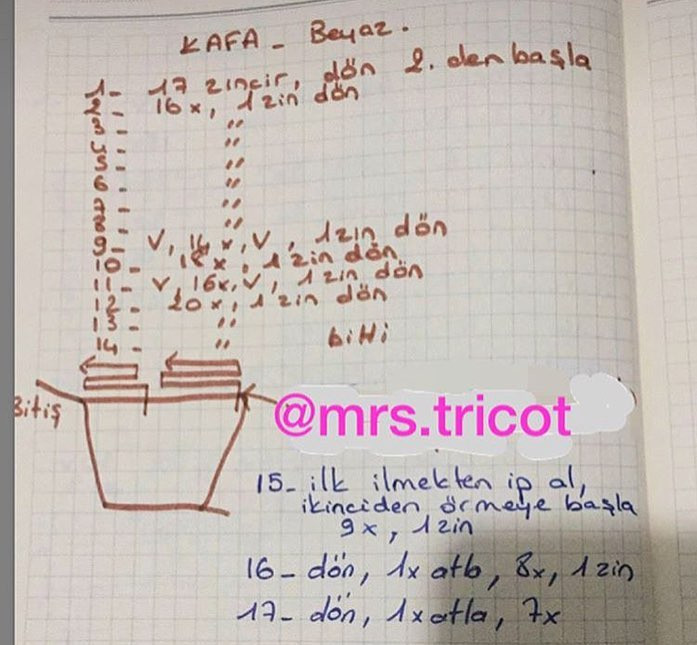 KAFA - Beyaz.
1- 17 zincir, dön 2. den başla
2- 16x, 1zin dön
3- "
4- "
5- "
6- "
7- "
8- "
9- V, 14x, V, 1zin dön
10- 18x, 1zin dön
11- V, 16x, V, 1zin dön
12- 20x, 1zin dön
13- "
14- " bitti
Bitiş
@mrs.tricot
15- ilk ilmekten ip al,
ikinciden örmeye başla
9x, 1zin
16- dön, 1x atb, 8x, 1zin
17- dön, 1x atla, 7x